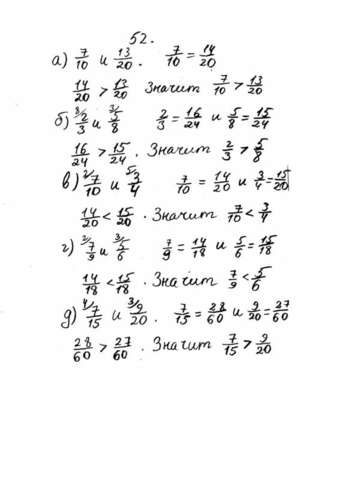 52.
а) 7/10 и 13/20. 7/10 = 14/20
14/20 > 13/20 Значит 7/10 > 13/20
б) 8/2/3 и 3/5/8 2/3 = 16/24 и 5/8 = 15/24
16/24 > 15/24. Значит 2/3 > 5/8
в) 2/7/10 и 5/3/4 7/10 = 14/20 и 3/4 = 15/20
14/20 < 15/20. Значит 7/10 < 3/4
г) 2/7/9 и 3/5/6 7/9 = 14/18 и 5/6 = 15/18
14/18 < 15/18. Значит 7/9 < 5/6
д) 4/7/15 и 3/9/20. 7/15 = 28/60 и 9/20 = 27/60
28/60 > 27/60. Значит 7/15 > 9/20